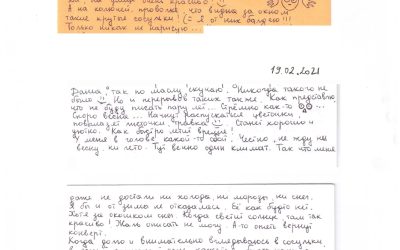 на улице очень красиво
А на колючей проволоке, что видна за окном
такие крутые сосульки! (= Я от них балдею!!!
Только никак не нарисую...
19.02.2021
Даша, так по маму скучаю. Никогда такого не
было. Но и перерывов таких также. Как представлю
что не буду писать пару лет. Стрёмно как-то
Скоро весна... Начнут распускаться цветочки,
повылазит молодая травка. Станет хорошо и
уютно. Как быстро летит время!
У меня в голове какой-то сбой. Честно, не жду ни
весну, ни лето. Тут вечно один климат. Так что меня
даже не достали ни холода, ни морозы, ни снег.
Я бы и от зимы не отказалась. Её как будто нет.
Хотя за окошком снег. Когда светит солнце, там так
красиво! Жаль описать не могу. А то опять вернут
конверт.
Когда долго и внимательно вглядываюсь в сосульки,